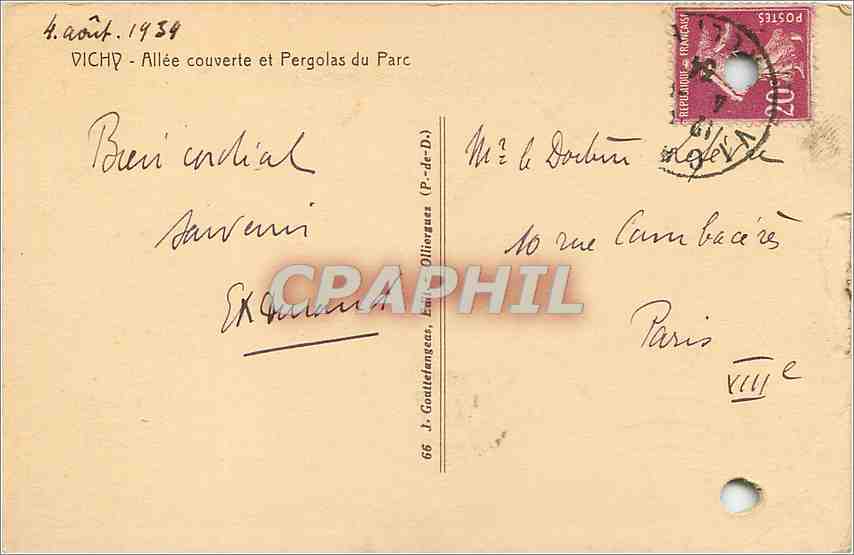 4. août. 1934
VICHY - Allée couverte et Pergolas du Parc
Bien cordial
souvenir
Durand
66 J. Gouttefangeas, Edit. - Olliergues (P.-de-D.)
REPUBLIQUE FRANÇAISE
POSTES
20
VICHY
4
34
Mr le Docteur
10 rue Cambacérès
Paris
VIIIe
CPAPHIL